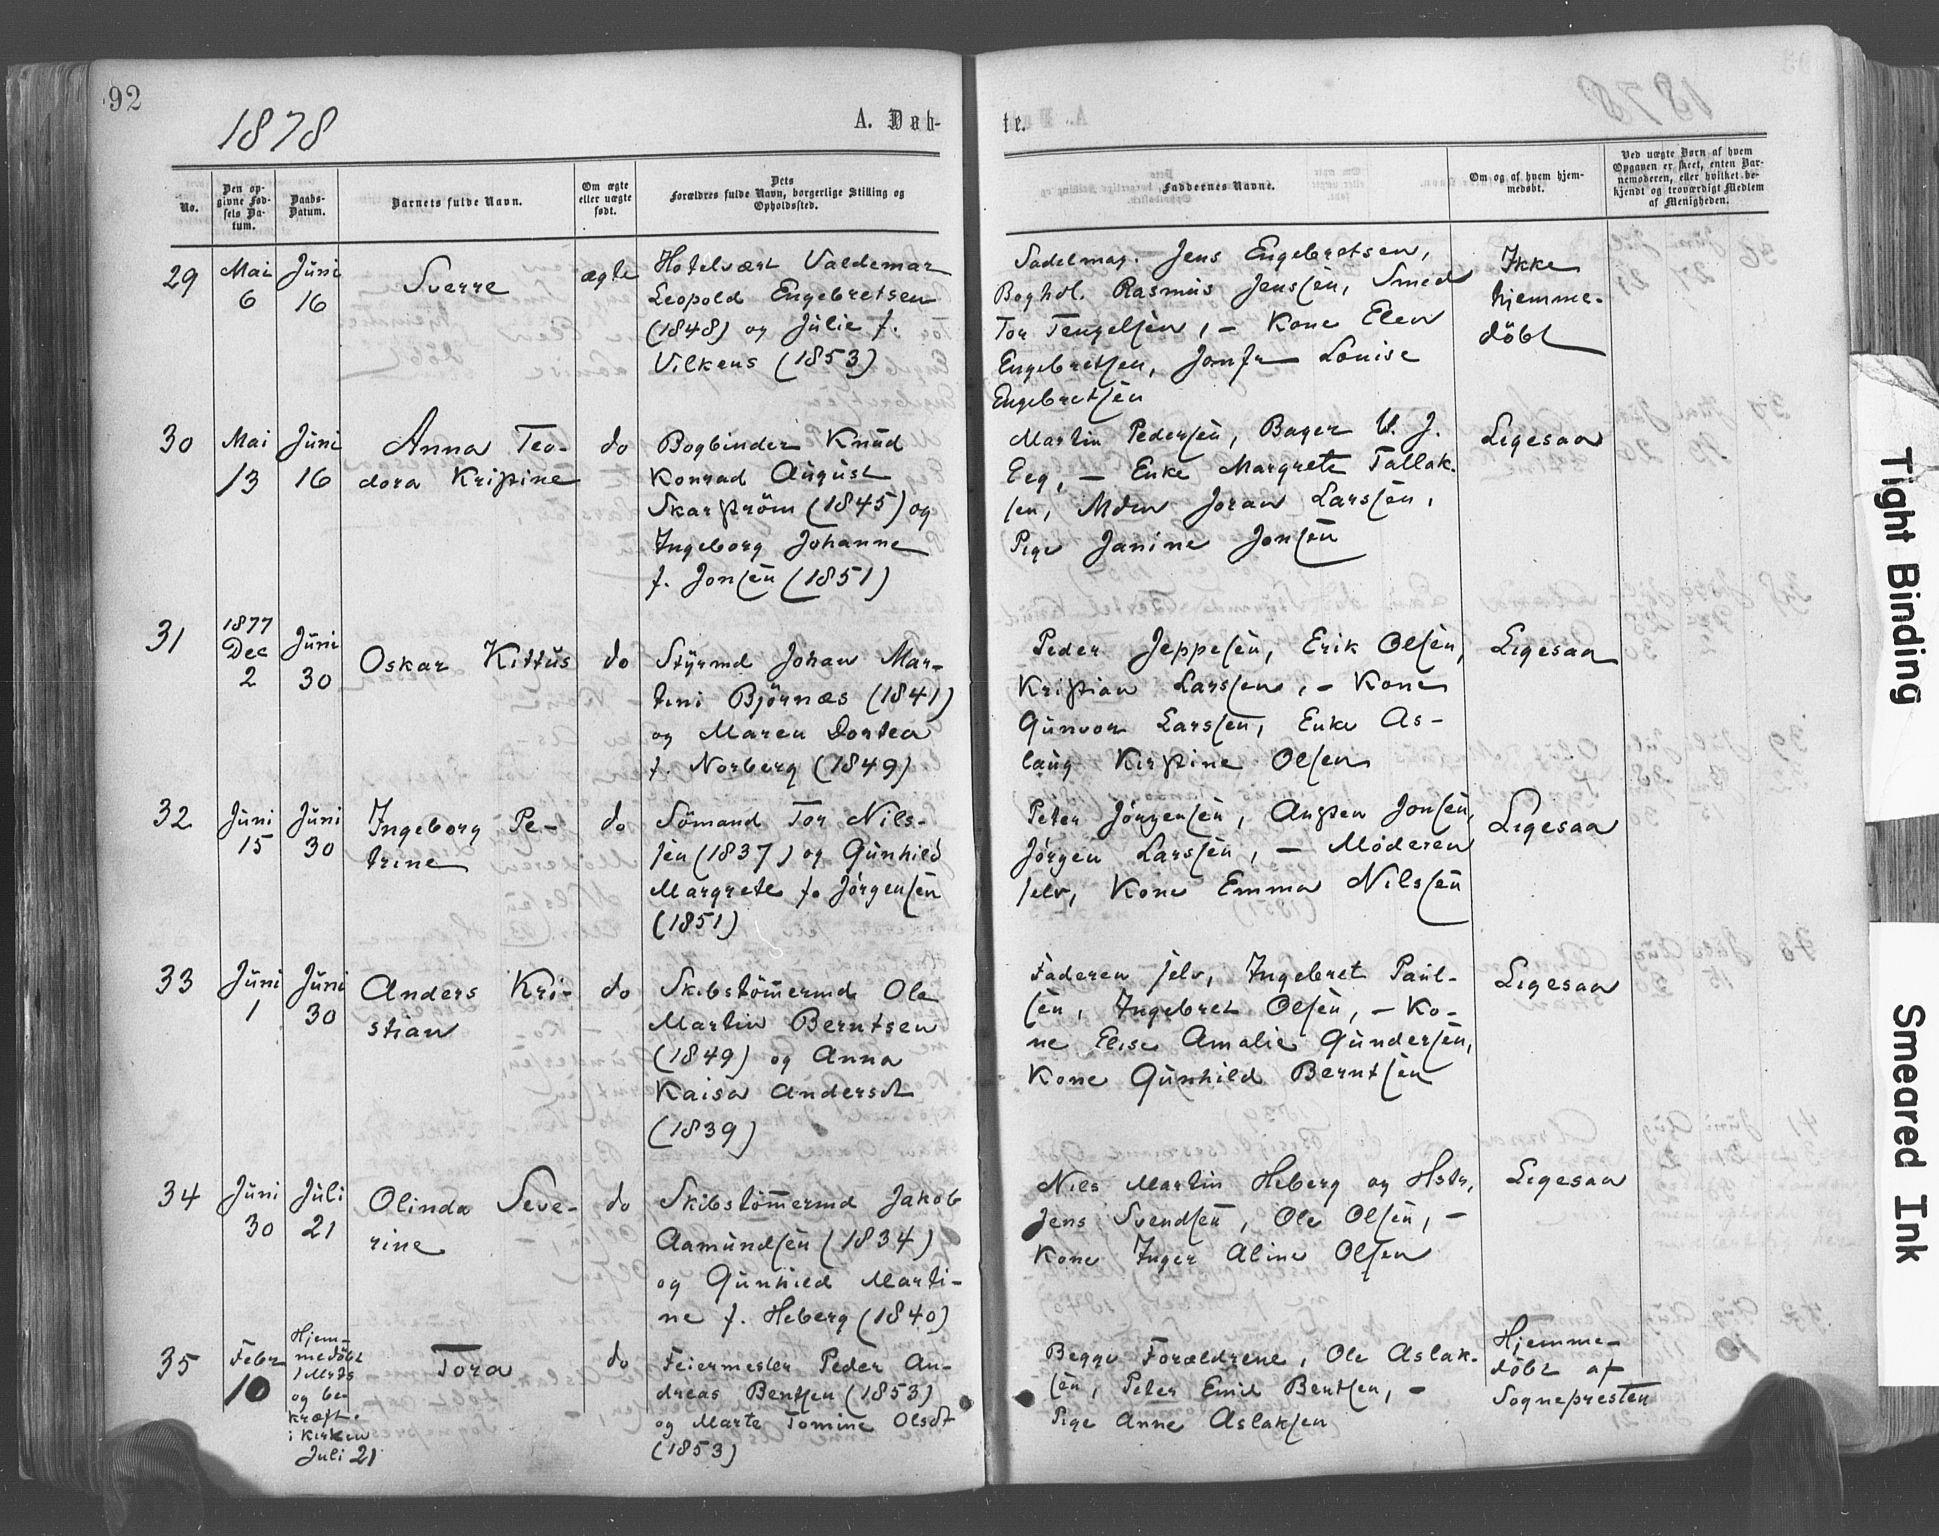 92
1878
A. Dab-
te.
No.
Den op-
givne Fød-
sels Da-
tum.
Daabs-
Datum.
Barnets fulde Navn.
Om ægte
eller uægte
født.
Dets
Forældres fulde Navn, borgerlige Stilling og
Opholdssted.
Faddernes Navne.
Om og af hvem hjem-
medøbt.
Ved uægte Børn af hvem
Opgaven er skeet, enten Bar-
nemoderen, eller hvilket be-
kjendt og troværdigt Medlem
af Menigheden.
29
Mai
6
Juni
16
Sverre
ægte
Hotelvært Valdemar
Leopold Engebretsen
(1848) og Julie f.
Vilkens (1853)
Sadelmag. Jens Engebretsen,
Boghdl. Rasmus Jenssen, Smed
Tor Tengelsen, – Kone Elen
Engebretsen, Jomfr Louise
Engebretsen
Ikke
hjemme-
döbt
30
Mai
13
Juni
16
Anna Teo-
dora Kristine
do
Bogbinder Knud
Konrad August
Skarström (1845) og
Ingeborg Johanne
f. Jonsen (1851)
Martin Pedersen, Bager U. J.
Eeg, – Enke Margrete Tallak-
sen, Mdm Joran Larssen,
Pige Janine Jonsen
Ligesaa
31
1877
Dec
2
Juni
30
Oskar Kittus
do
Styrmd Johan Mar-
tini Björnæs (1841)
og Maren Dortea
f. Norberg (1849)
Peder Jeppesen, Erik Olsen,
Kristian Larssen, – Kone
Gunvor Larssen, Enke As-
laug Kirstine Olsen
Ligesaa
32
Juni
15
Juni
30
Ingeborg Pe-
trine
do
Sömand Tor Nils-
sen (1837) og Gunhild
Margrete f. Jörgensen
(1851)
Peter Jörgensen, Austen Jonsen,
Jörgen Larssen, – Moderen
selv, Kone Emma Nilssen
Ligesaa
33
Juni
1
Juni
30
Anders Kri-
stian
do
Skibstömermd Ole
Martin Berntsen
(1849) og Anna
Kaisa Andersdt
(1839)
Faderen selv, Ingebret Paul-
sen, Ingebret Olsen, – Ko-
ne Elise Amalie Gundersen,
Kone Gunhild Berntsen
Ligesaa
34
Juni
30
Juli
21
Olinda Seve-
rine
do
Skibstömermd Jakob
Aamundsen (1834)
og Gunhild Marti-
ne f. Heberg (1840)
Niels Martin Heberg og Hstr,
Jens Svendsen, Ole Olsen, –
Kone Inger Aline Olsen
Ligesaa
35
Febr
10
Hjem-
medöbt
1 Mrts
og be-
kræft.
i Kirken
Juli 21
Tora
do
Feiermester Peder An-
dreas Bentsen (1853)
og Marte Tomine Olsdt
(1853)
Begge Forældrene, Ole Aslak-
sen, Peter Emil Bentsen, –
Pige Anne Aslaksen
Hjemme-
döbt af
Sognepresten
Tight Binding
Smeared Ink